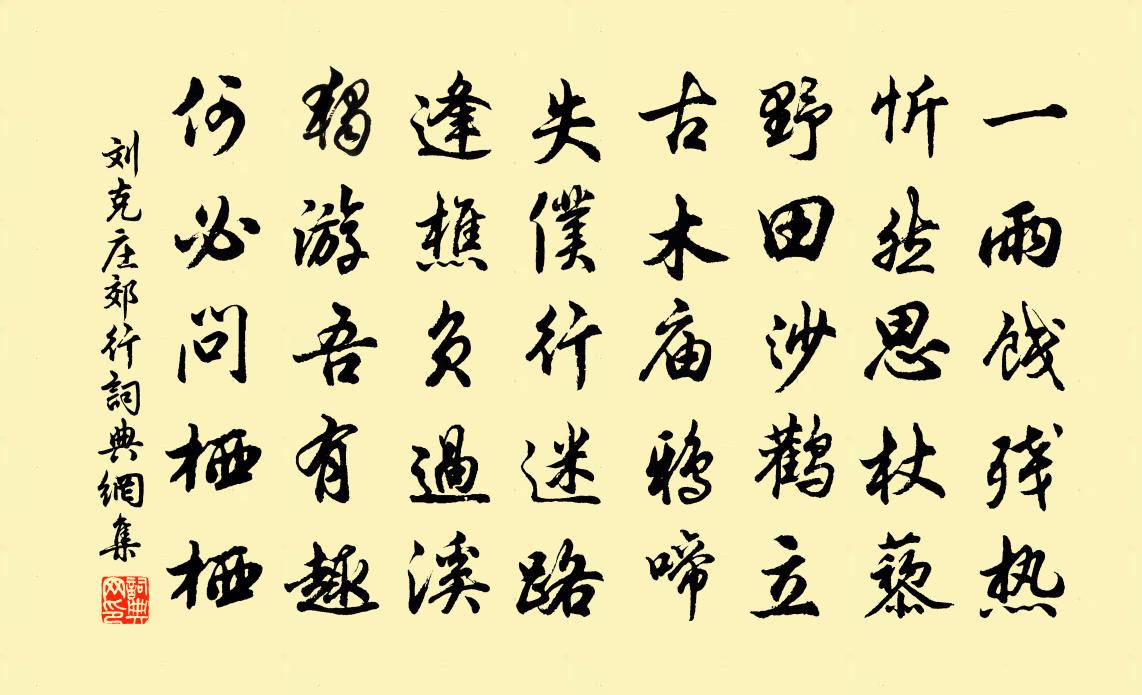 一雨饯残热
忻然思杖藜
野田沙鸛立
古木庙鴉啼
失僕行迷路
逢樵负過溪
獨游吾有趣
何必问栖栖
刘克庄郊行詞典網集
詞典网印